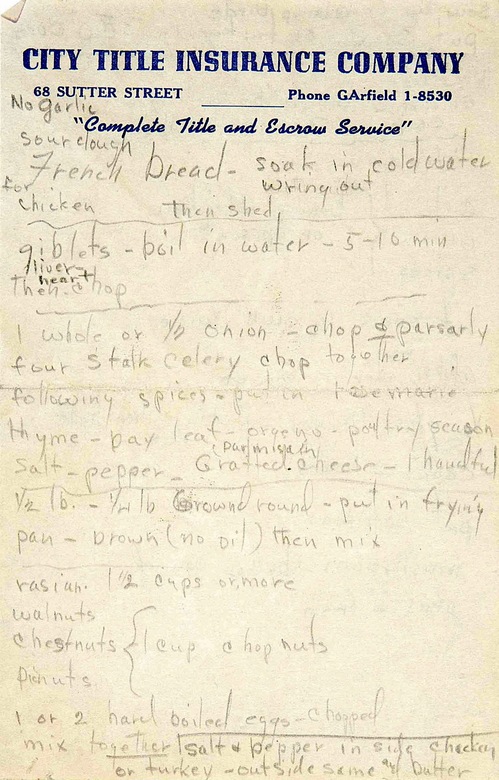 CITY TITLE INSURANCE COMPANY
68 SUTTER STREET
Phone GArfield 1-8530
"Complete Title and Escrow Service"
No garlic
sourdough
French bread - soak in cold water
wring out
for
chicken then shed
giblets - boil in water - 5-10 min
liver -
heart
then chop
1 whole or 1/2 onion - chop & parsarly
four stalk celery chop together
following spices - put in rosemarie
thyme - bay leaf - oregeno - poltry season
parmisian
salt - pepper - Gratted cheese - 1 handful
1/2 lb. - 1/4 lb Ground round - put in frying
pan - brown (no oil) then mix
rasian. 1 1/2 cups or more
walnuts
chestnuts { 1 cup chop nuts
pinuts
1 or 2 hard boiled eggs - chopped
mix together salt & pepper in side chicken
or turkey - outside same & butter